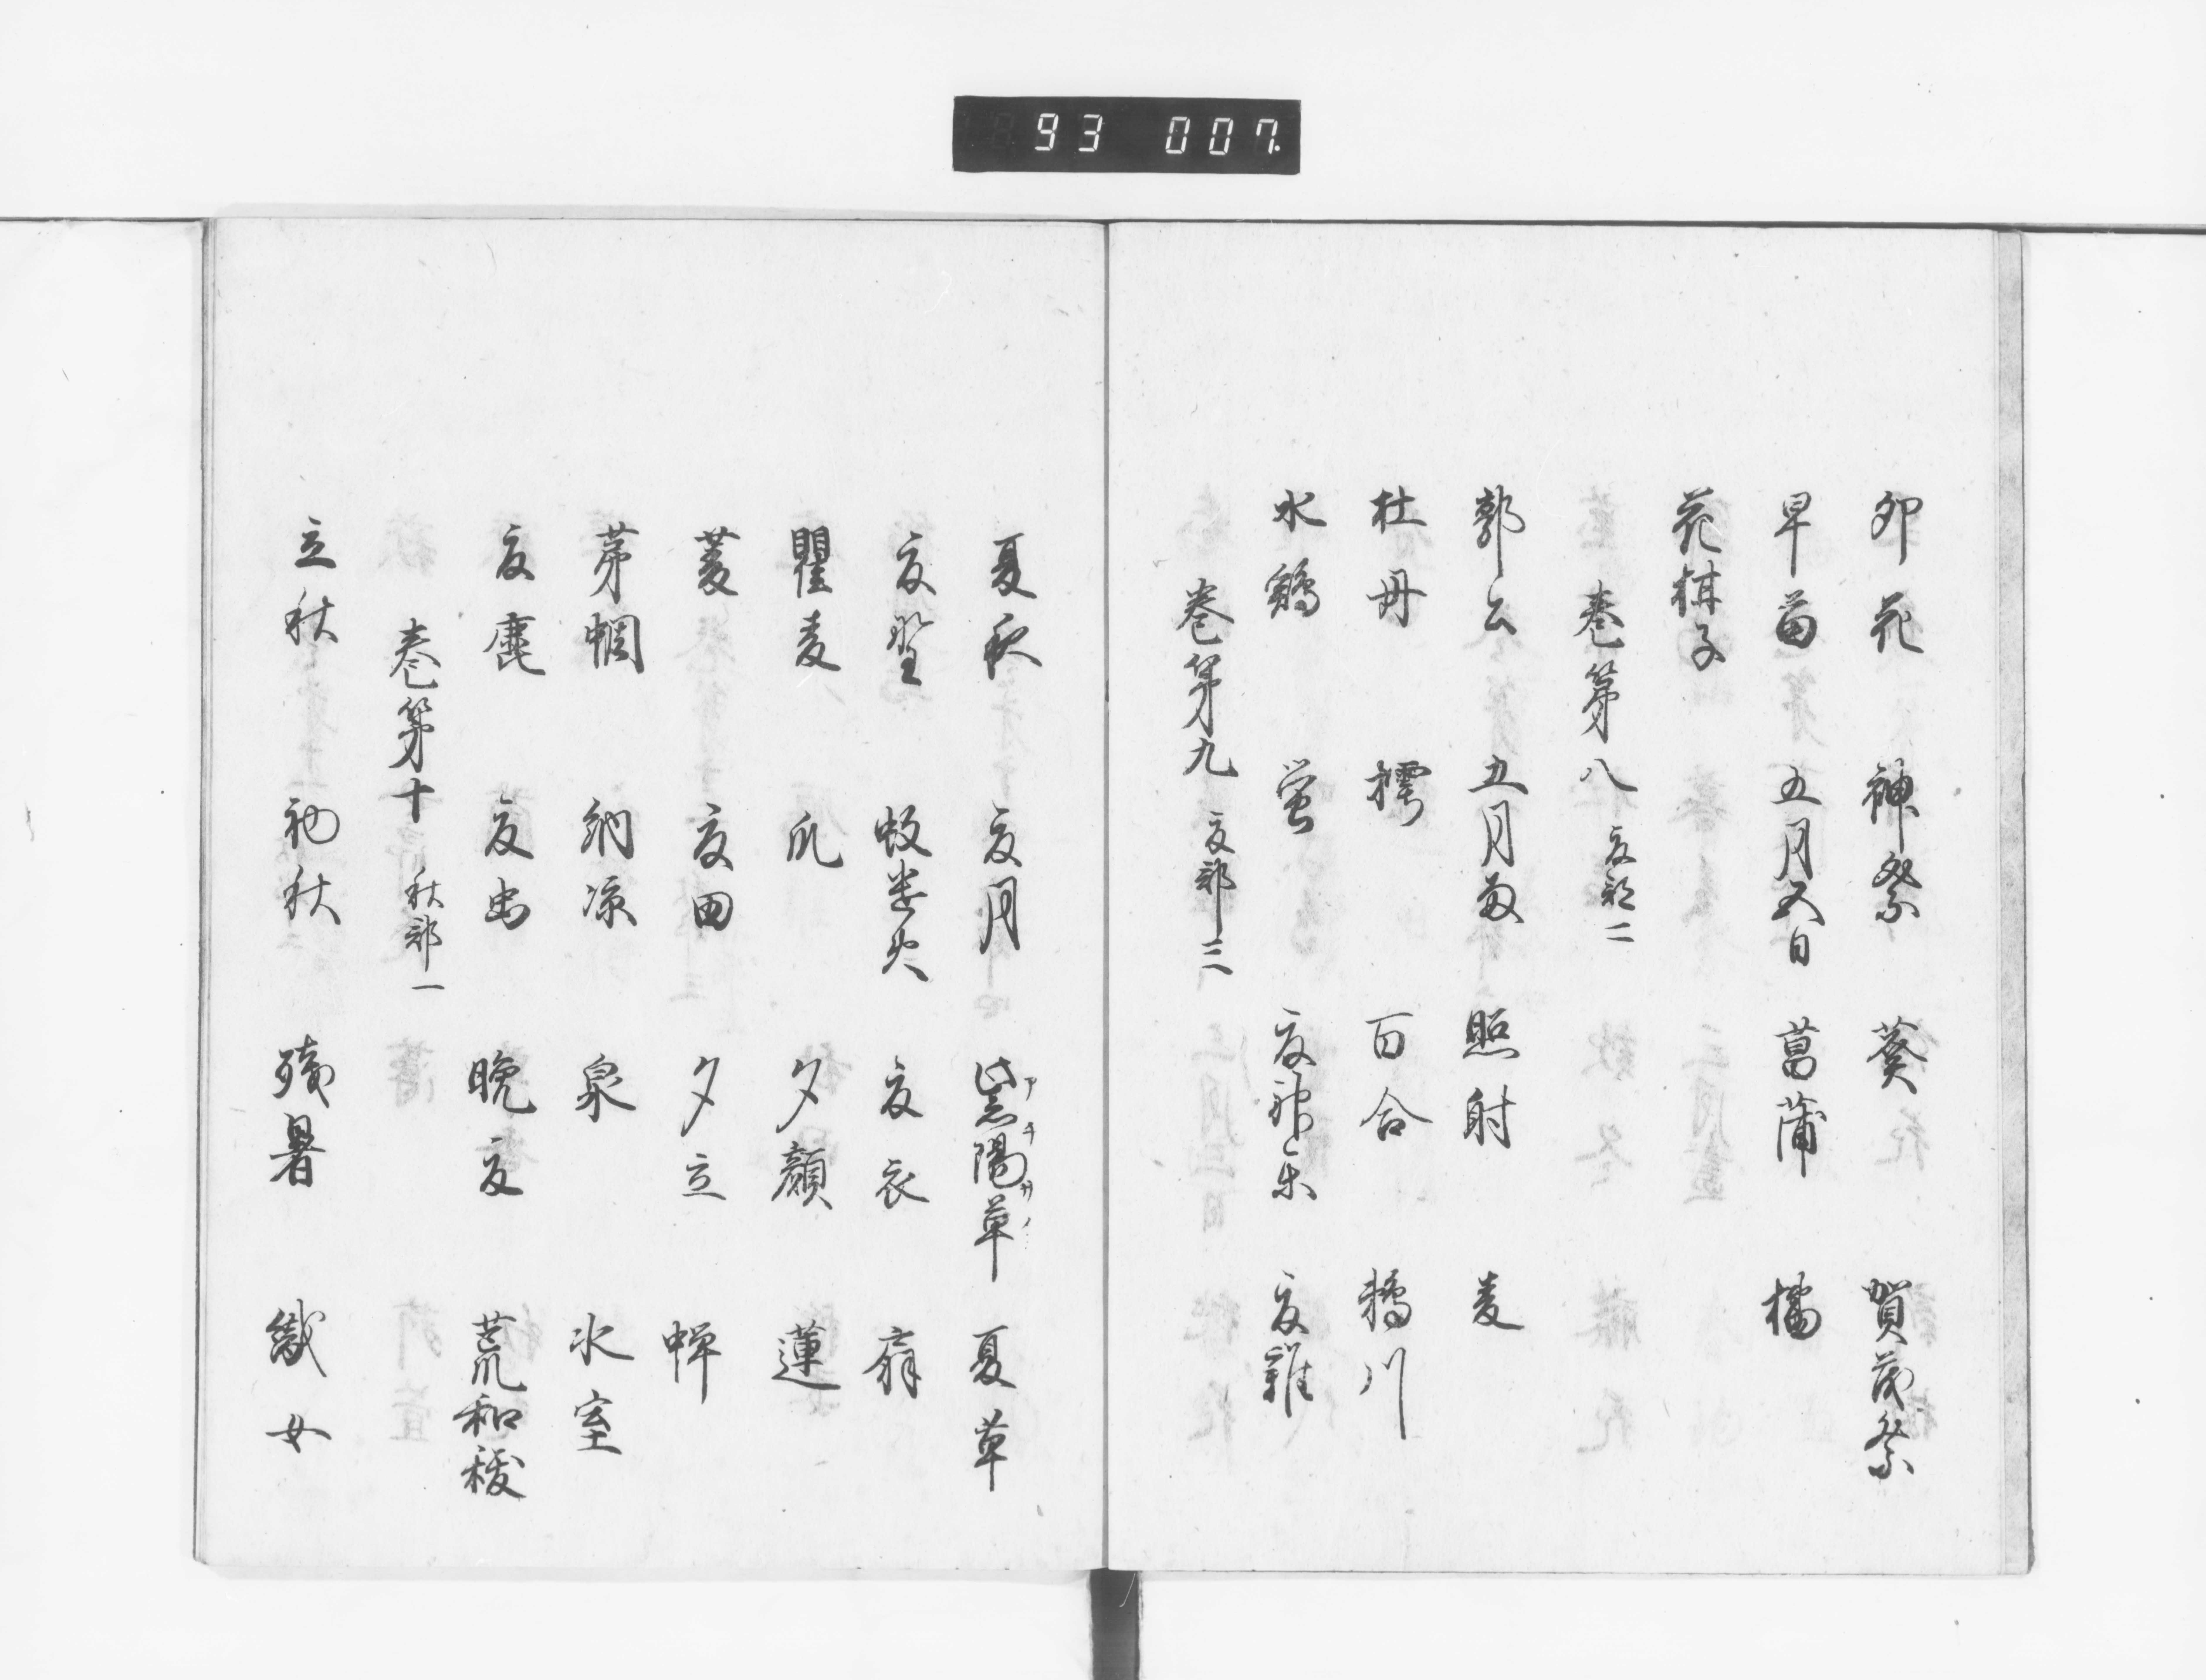 93 007.
卯花 神祭 葵 賀茂祭
早苗 五月五日 菖蒲 橘
花柑子
巻第八 夏部二
郭公 五月雨 照射 麦
杜丹 樗 百合 鵜川
水鶏 蛍 夏神楽 夏雑
巻第九 夏部三
夏夜 夏月 紫陽草 夏草
夏野 蚊遣火 夏衣 扇
瞿麦 瓜 夕顔 蓮
菱 夏田 夕立 蝉
茅蜩 納涼 泉 氷室
夏鹿 夏虫 晩夏 荒和祓
巻第十 秋部一
立秋 初秋 残暑 織女